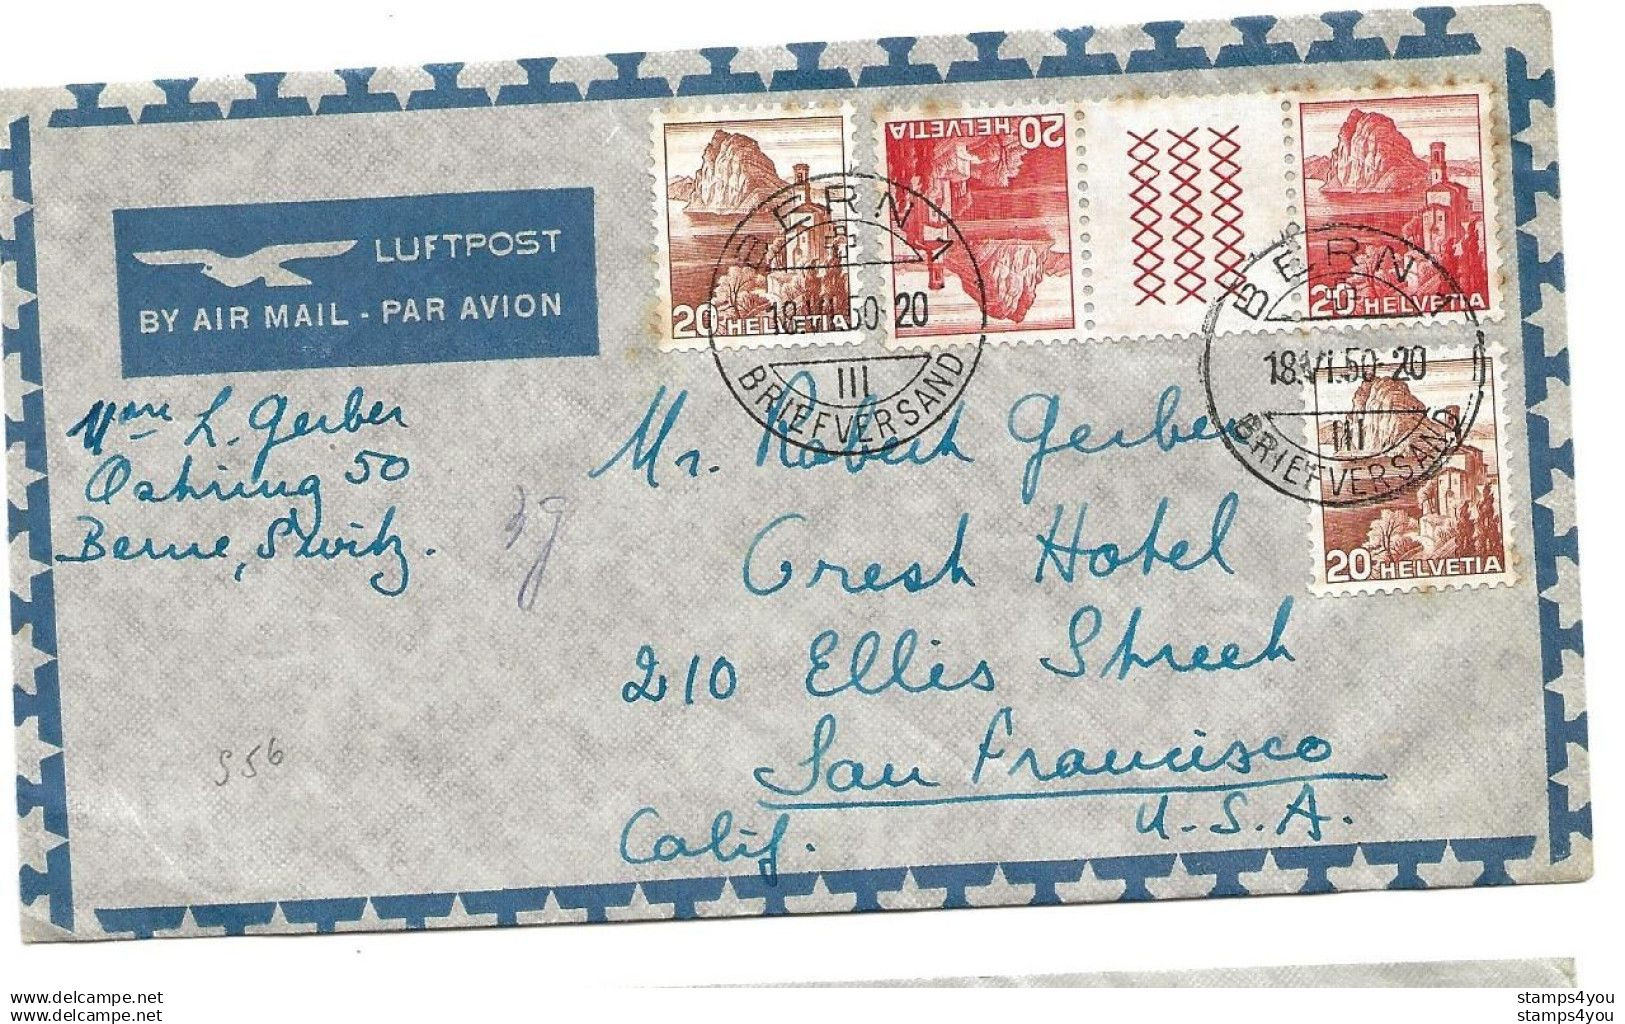 LUFTPOST
BY AIR MAIL - PAR AVION
20 HELVETIA
20 HELVETIA
20 HELVETIA
20 HELVETIA
BERN 1
18.VI.50-20
III
BRIEFVERSAND
BERN 1
18.VI.50-20
III
BRIEFVERSAND
Mme L. Gerber
Ostring 50
Berne, Switz.
Mr. Robert Gerber
Crest Hotel
210 Ellis Street
San Francisco
Calif. U.S.A.
556
stamps4you
stamps4you
delcampe.net
delcampe.net